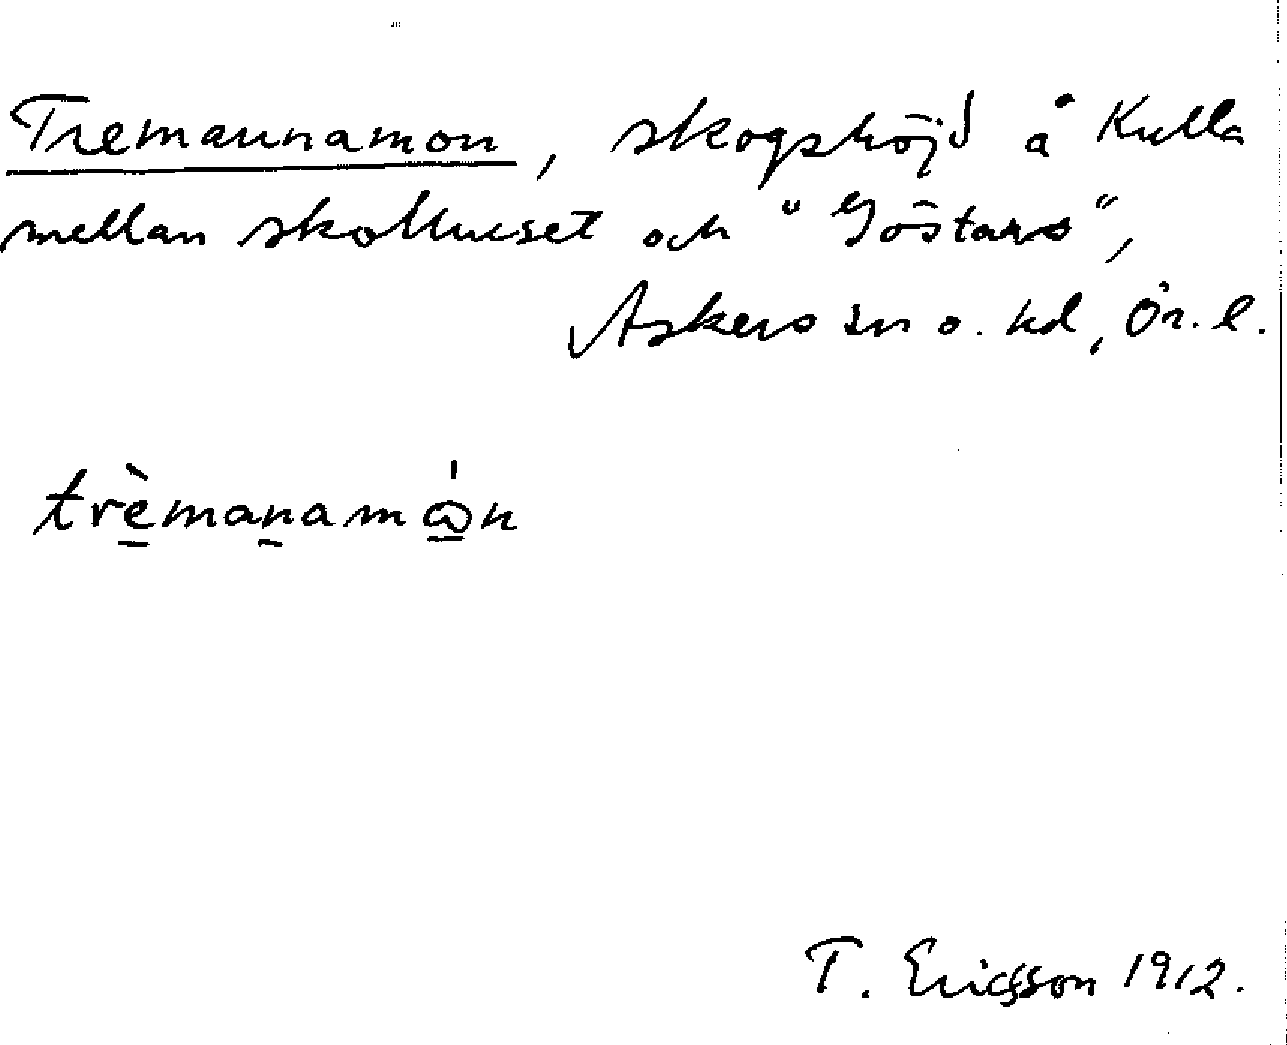 Tremannamon, skogshöjd å Kulla
mellan skolhuset och "Göstars",
Askers sn o. hd, Ör. l.
trèmanamón
T. Ericsson 1912.